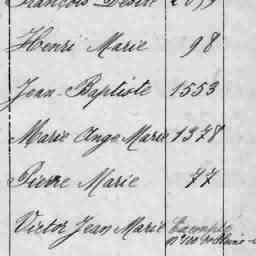 François Désiré 2079
Henri Marie 98
Jean-Baptiste 1553
Marie Ange Marie 1378
Pierre Marie 77
Victor Jean Marie Exempté